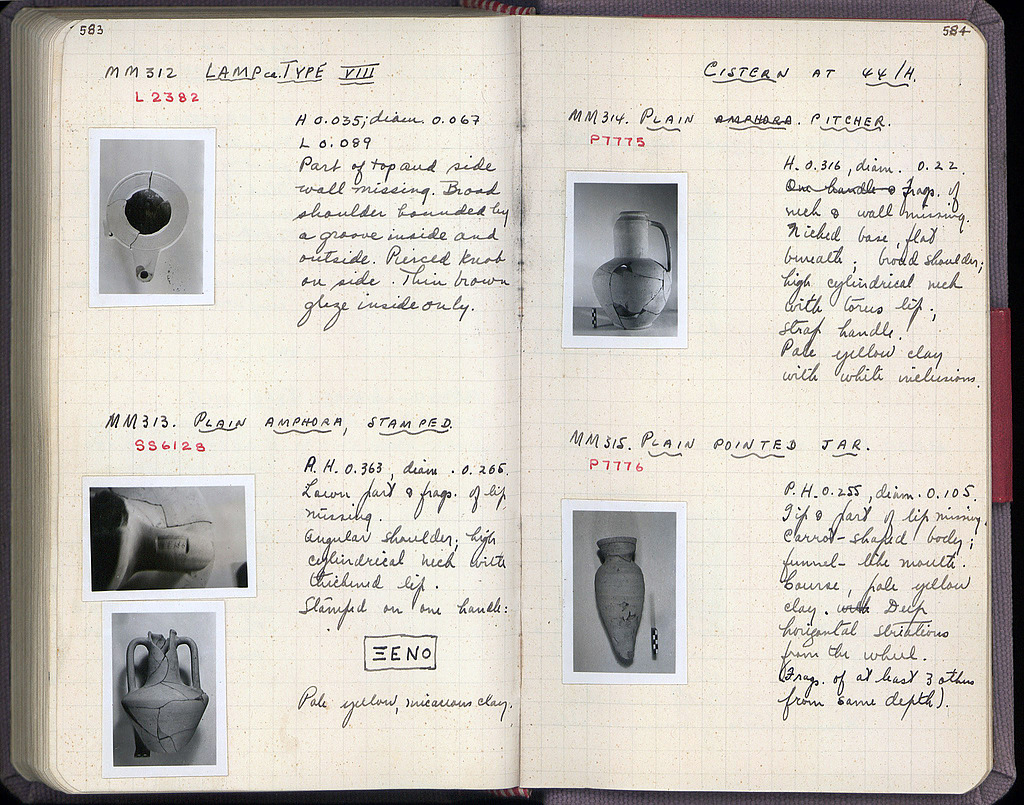 583
MM312 LAMP ca. TYPE VIII
L 2382
H 0.035; diam. 0.067
L 0.089
Part of top and side
wall missing. Broad
shoulder bounded by
a groove inside and
outside. Pierced knob
on side. Thin brown
glaze inside only.
MM313. PLAIN AMPHORA, STAMPED.
SS6128
P.H. 0.363, diam. 0.265.
Lower part & frags. of lip
missing.
Angular shoulder; high
cylindrical neck with
thickened lip.
Stamped on one handle:
ΞENO
Pale yellow, micaceous clay.
584
CISTERN AT 44/H.
MM314. PLAIN AMPHORA. PITCHER.
P7775
H. 0.316, diam. 0.22.
One handle & frags. of
neck & wall missing.
Niched base, flat
beneath; broad shoulder;
high cylindrical neck
with torus lip;
strap handle.
Pale yellow clay
with white inclusions.
MM315. PLAIN POINTED JAR.
P7776
P.H. 0.255, diam. 0.105.
Tip & part of lip missing.
Carrot-shaped body;
funnel-like mouth.
Course, pale yellow
clay. with Deep
horizontal striations
from the wheel.
(Frags. of at least 3 others
from same depth).